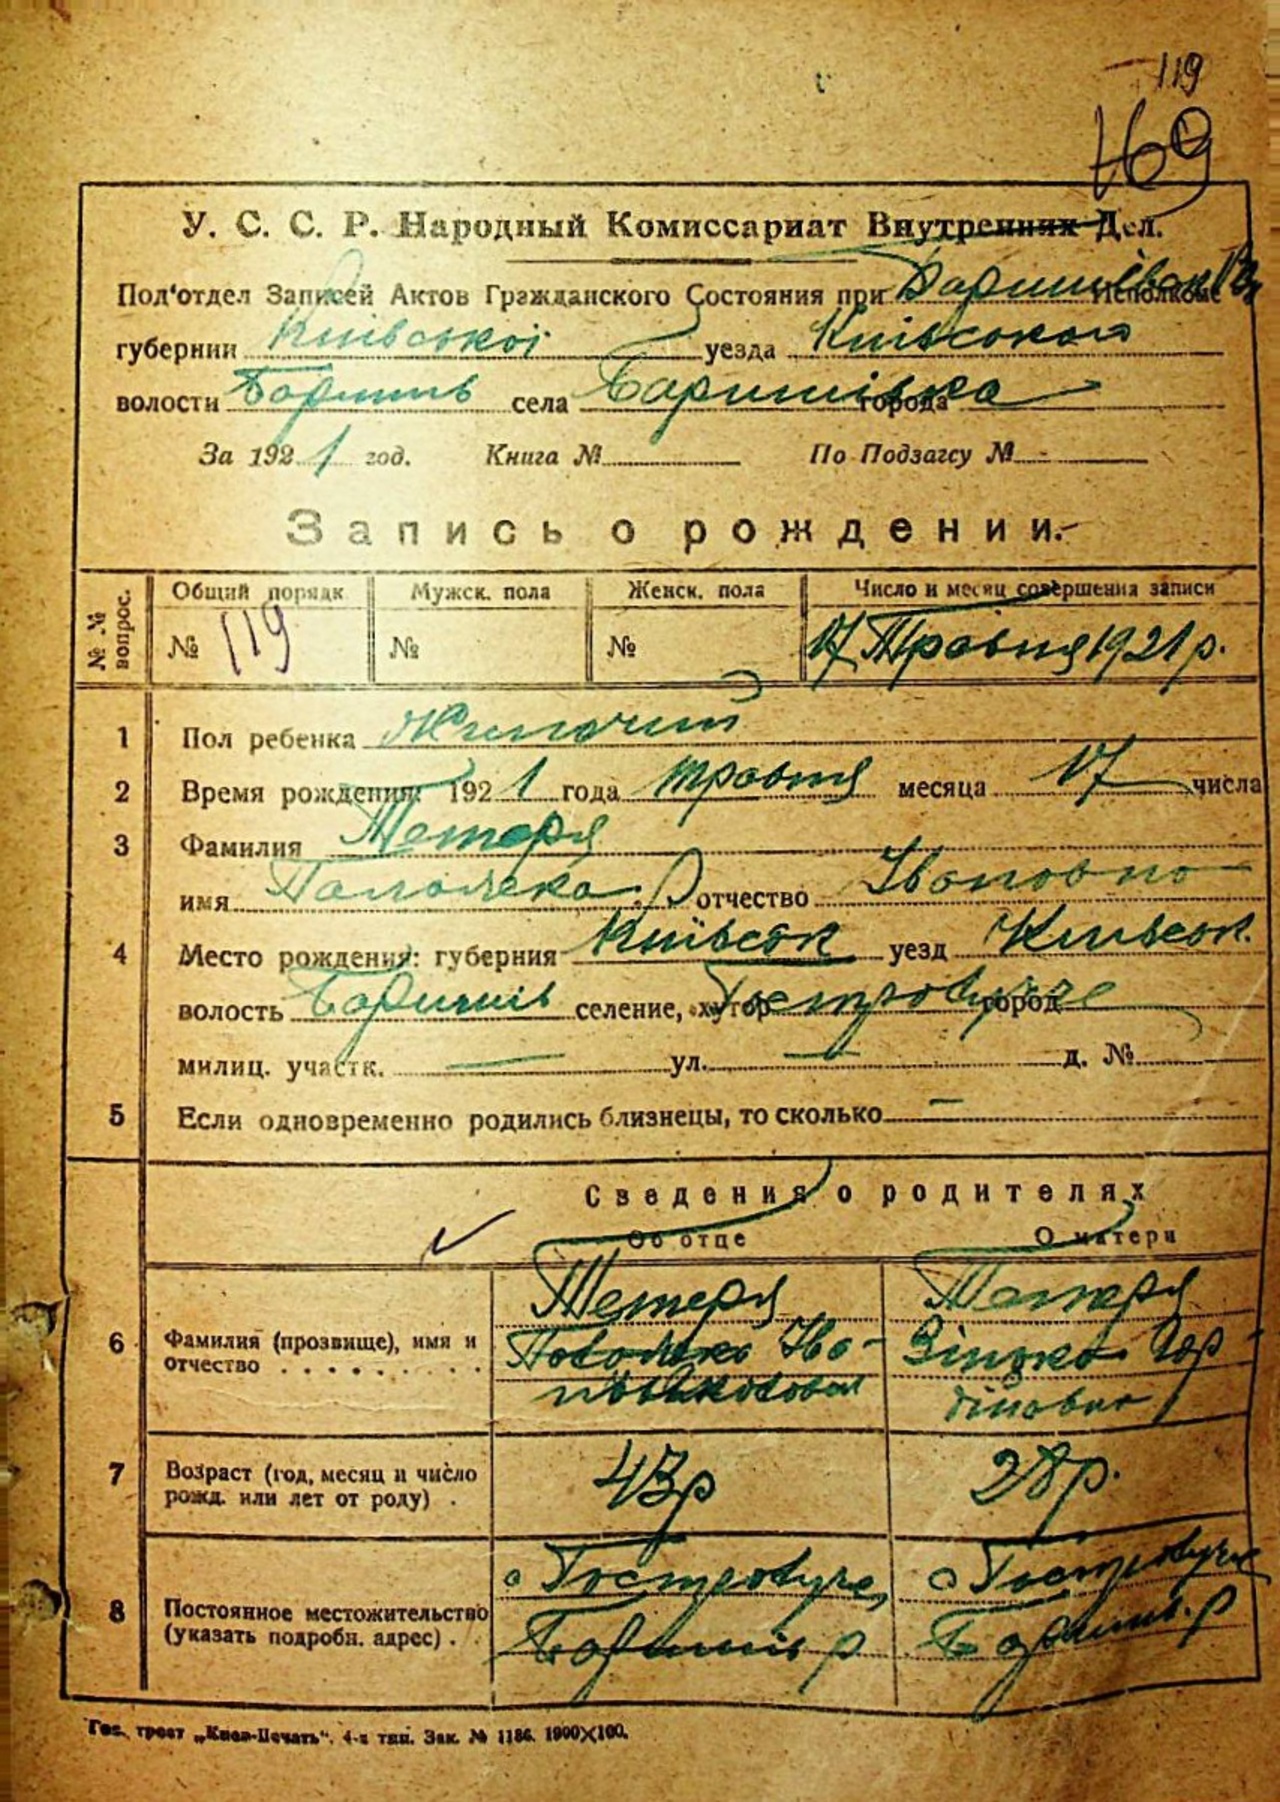 119
169
У. С. С. Р. Народный Комиссариат Внутренних Дел.
Под'отдел Записей Актов Гражданского Состояния при Исполкоме
губернии Київської уезда Київського
волости Баришів села Баришівка города
За 1921 год. Книга № По Подзагсу № -
Запись о рождении.
№ № вопрос. Общий порядк Мужск. пола Женск. пола Число и месяц совершения записи
№ 119 № № 17 Травня 1921 р.
1 Пол ребенка Жиночий
2 Время рождения: 1921 года травня месяца 17 числа
3 Фамилия Тетеря
имя отчество Ивановна
4 Место рождения: губерния Київськ уезд Київськ.
волость Баришів селение, хутор город
милиц. участк. — ул. — д. №
5 Если одновременно родились близнецы, то сколько —
Сведения о родителях
Об отце О матери
6 Фамилия (прозвище), имя и отчество Тетеря Тетеря
Гор-
дііовна
7 Возраст (год, месяц и число рожд. или лет от роду) 43 р 28 р.
8 Постоянное местожительство (указать подробн. адрес)
Баришів р Бариш. р
Гос. трест „Киев-Печать“. 4-я тип. Зак. № 1186. 1900×100.